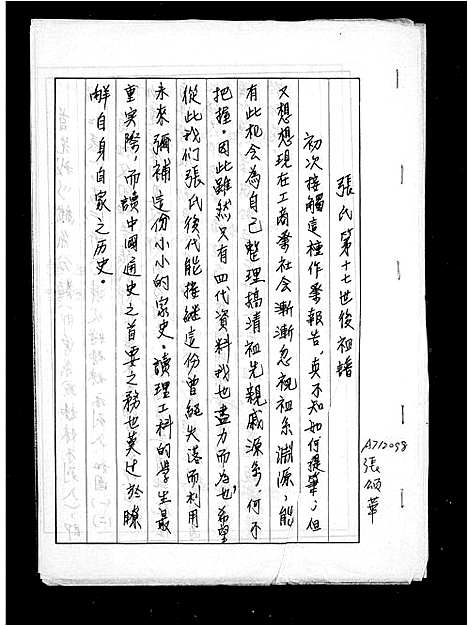 張氏第十七世後祖譜
A712098
張頌華
初次接觸這種作業報告，真不知如何提筆；但
又想想現在工商業社会漸漸忽視祖系淵源，能
有此机会為自己整理搞清祖先親戚源系，何不
把握。因此雖然只有四代資料我也盡力而為，希望
從此我们張氏後代能接繼這份曾經失落而利用
未來彌補這份小小的家史。讀理工科的學生最
重实際，而讀中國通史之首要之務也莫过於瞭
解自身自家之历史。